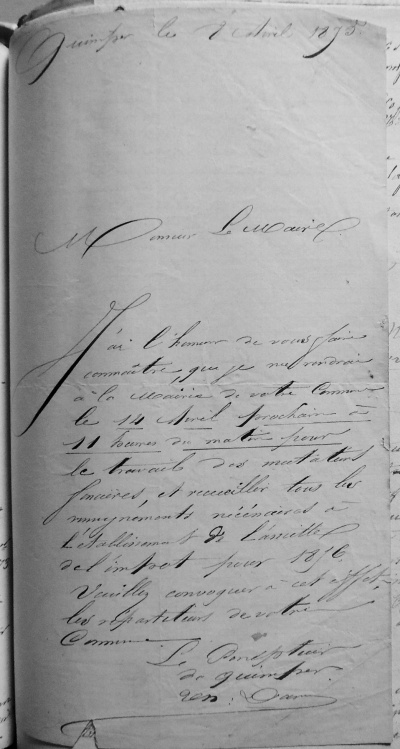 Quimper le 2 Avril 1875
Monsieur Le Maire
J'ai l'honneur de vous faire
connaître, que je me rendrai
à la Mairie de votre Commune
le 14 Avril prochain à
11 heures du matin pour
le travail des mutations
foncières, et recueillir tous les
rensignements nécéssaires à
l'établissement de l'assiette
de l'impôt pour 1876.
Veuillez convoquer à cet effet,
les répartiteurs de votre
Commune.
Le Percepteur
de Quimper.